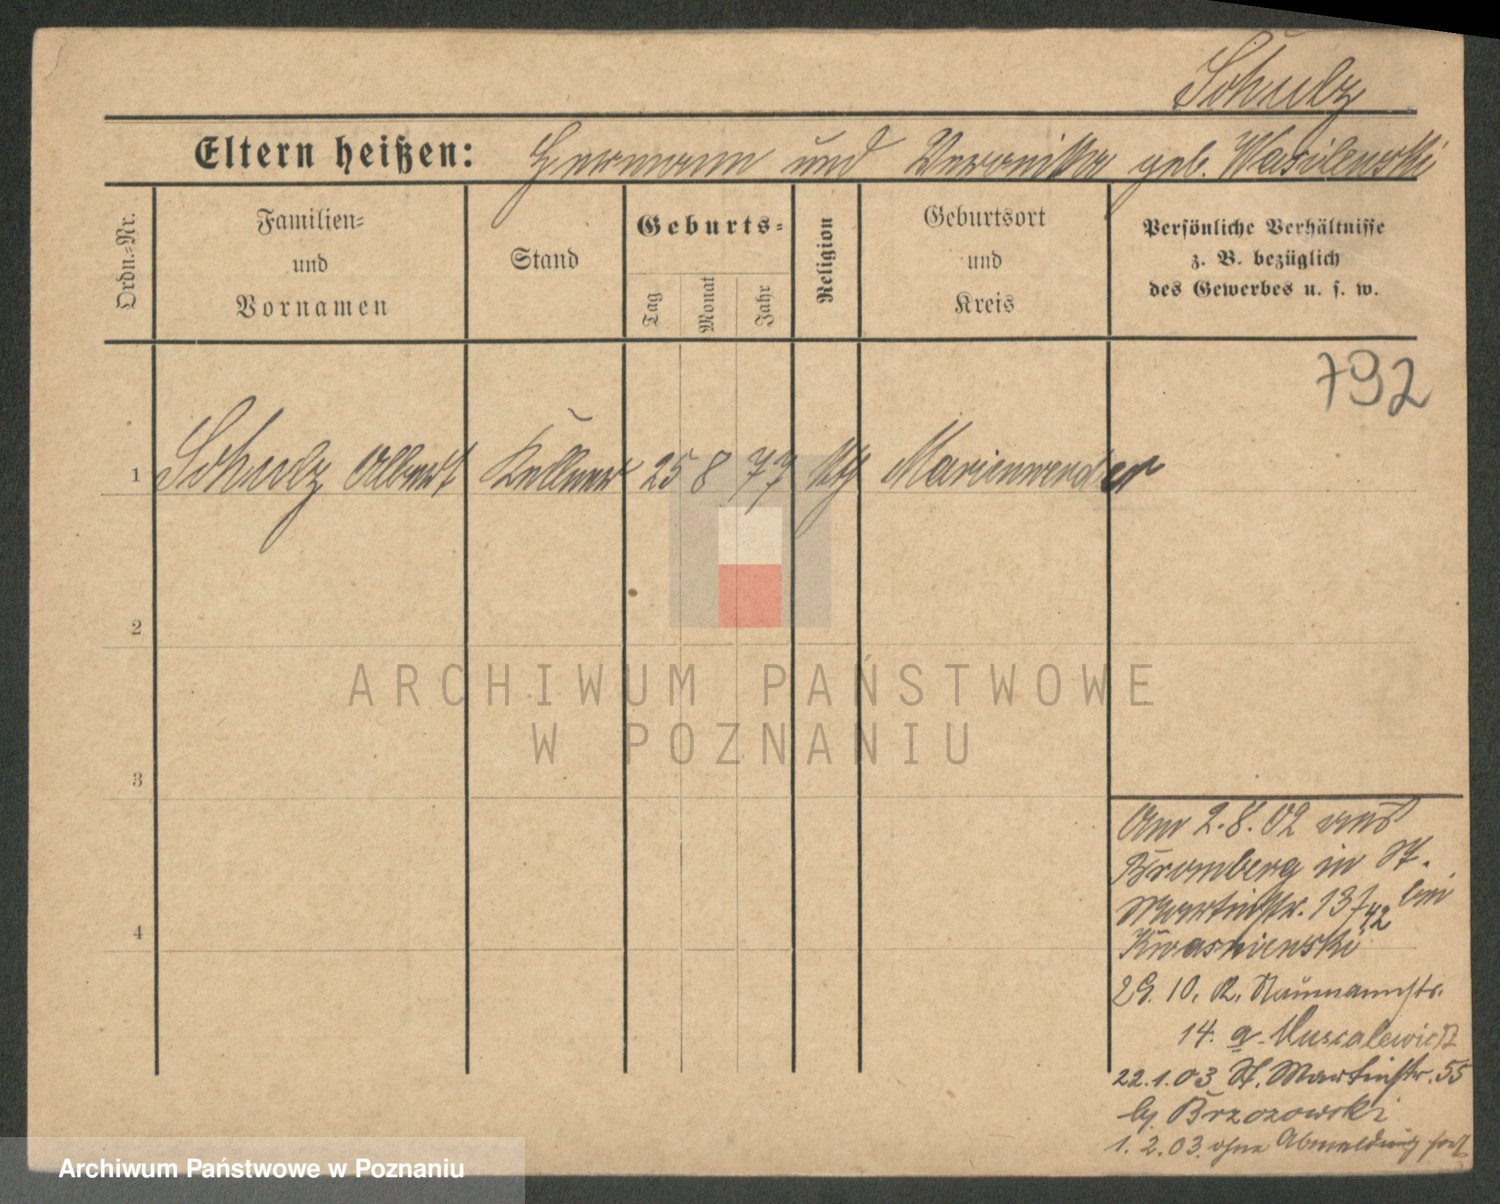 Schulz
Eltern heißen: Hermann und Veronika geb. Wasilewski
Ordn.-Nr.
Familien-
und
Vornamen
Stand
Geburts-
Tag
Monat
Jahr
Religion
Geburtsort
und
Kreis
Persönliche Verhältnisse
z. B. bezüglich
des Gewerbes u. s. w.
792
1 Schulz Albert Kellner 25 8 77 kth Marienwerder
2
3
4
Am 2.8.02 aus
Bromberg in St.
Martinstr. 13 bei
Kwasniewski
29. 10. R. Naumannstr.
14. a.
22.1.03 St. Martinstr. 55
by Brzozowski
1.2.03. ohne Abmeldung fort
ARCHIWUM PAŃSTWOWE
W POZNANIU
Archiwum Państwowe w Poznaniu